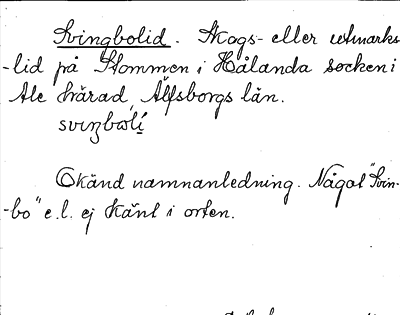 Svingbolid. Skogs- eller utmarks-
-lid på Stommen i Hålanda socken i
Ale härad, Älfsborgs län.
svɪŋbωlí
Okänd namnanledning. Något "Svin-
-bo" e.l. ej känt i orten.